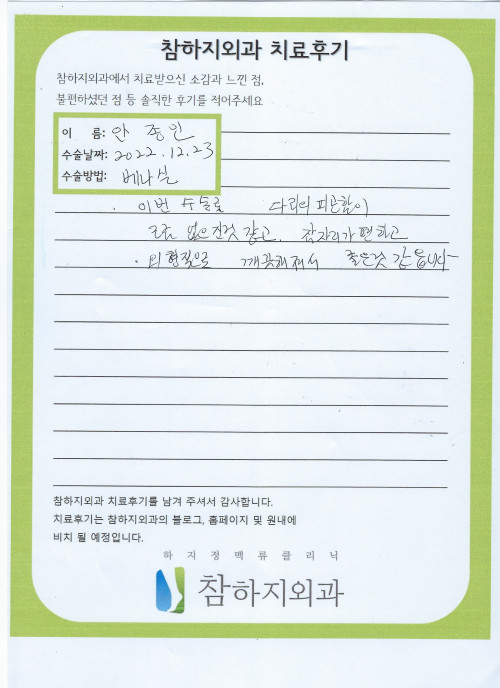 참하지외과 치료후기
참하지외과에서 치료받으신 소감과 느낀 점,
불편하셨던 점 등 솔직한 후기를 적어주세요
이 름: 안 종인
수술날짜: 2022.12.23
수술방법: 베나실
. 이번 수술로 다리의 피곤함이
조금 없어진것 같고, 잠자리가 편하고
. 외형적으로 깨끗해져서 좋은것 같읍니다
참하지외과 치료후기를 남겨 주셔서 감사합니다.
치료후기는 참하지외과의 블로그, 홈페이지 및 원내에
비치 될 예정입니다.
하지정맥류클리닉
참하지외과